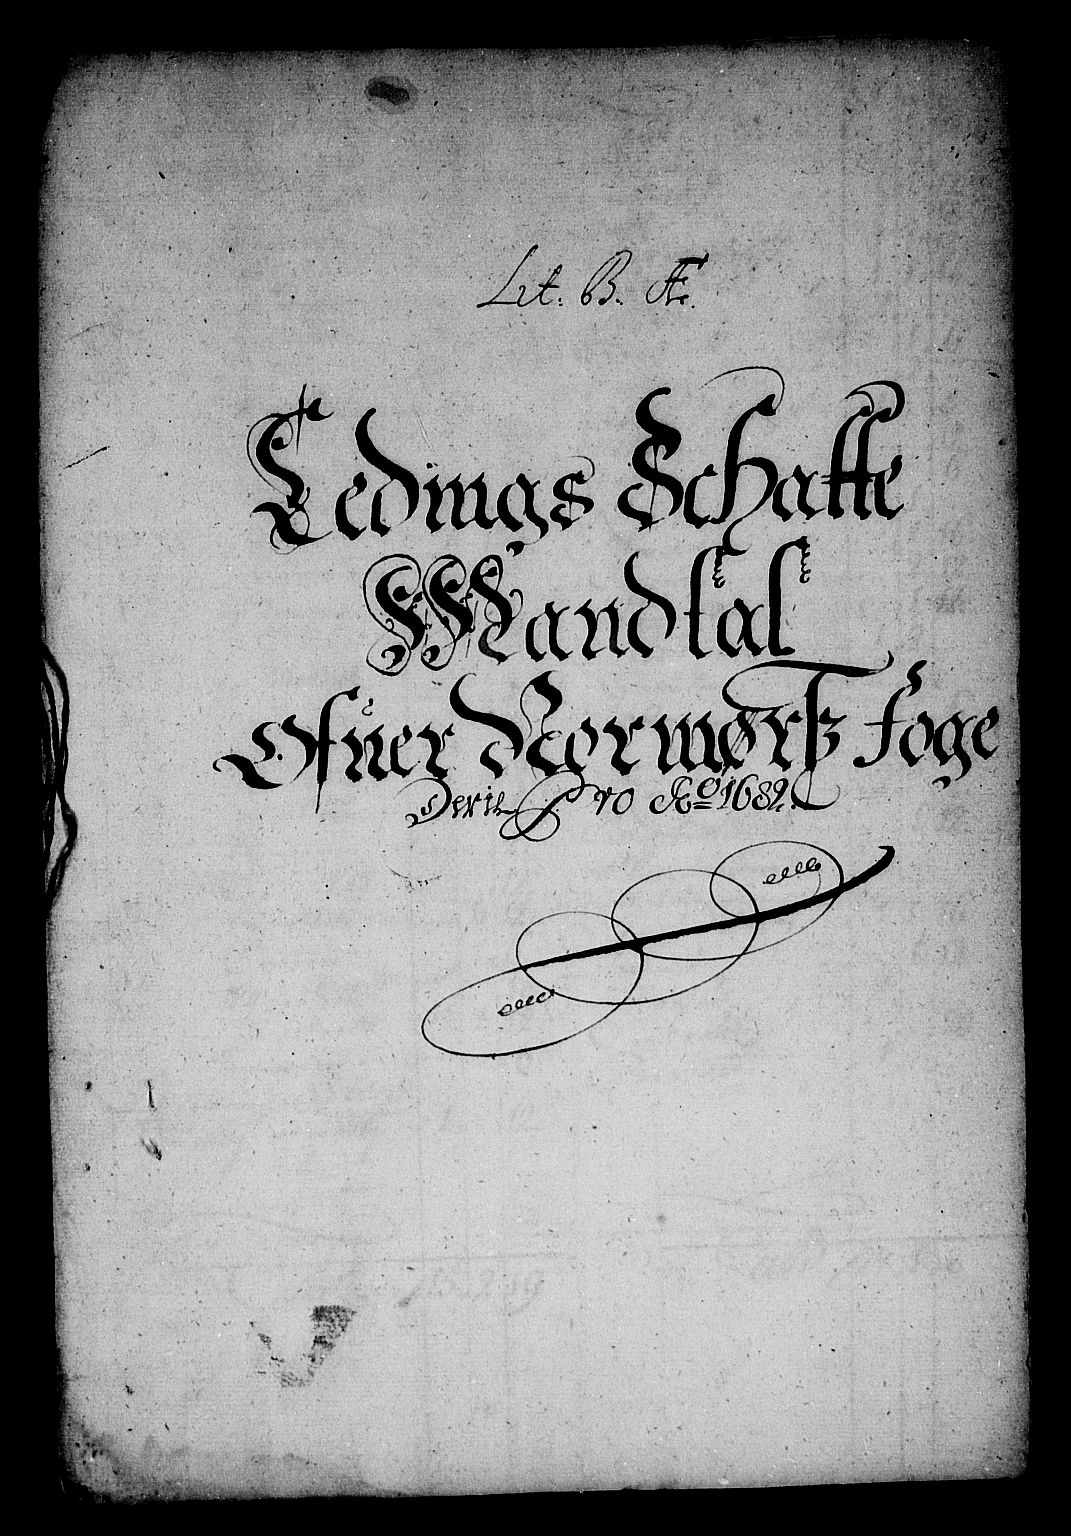 Lit. B. Æ.
Ledings Schatte
Mandtal
Ofuer Normørtz Foge
Derie Pro Aº 1689.